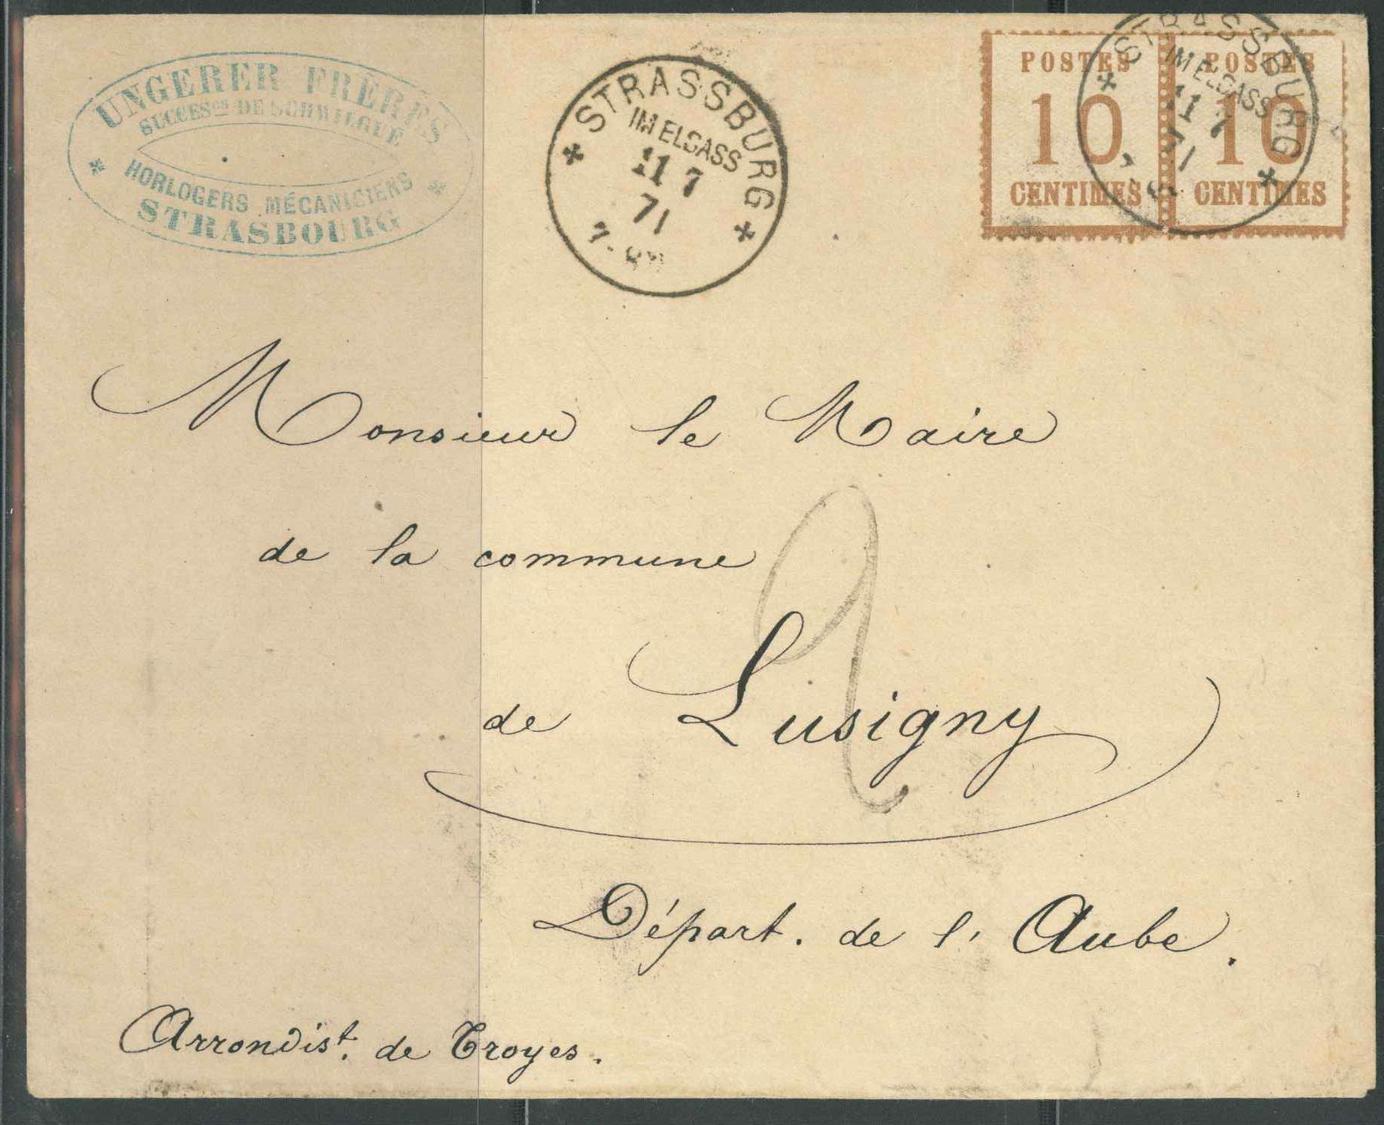 UNGERER FRÈRES
SUCCES.RS DE SCHWILGUÉ
HORLOGERS MÉCANICIENS
STRASBOURG
STRASSBURG
IM ELSASS
11 7
71
7-8
POSTES
10
CENTIMES
POSTES
10
CENTIMES
STRASSBURG
IM ELSASS
11 7
71
Monsieur le Maire
de la commune
2
de Lusigny
Départ. de l'Aube.
Arrondist. de Troyes.